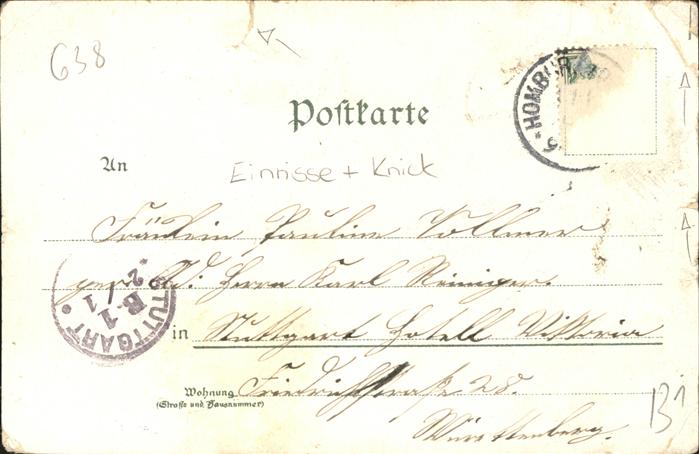 638
HOMBURG
Postkarte
An
Einrisse + Knick
Fräulein Pauline Vollmer
per Ad. Herrn Karl Reiniger.
STUTTGART
B. 1
in Stuttgart Hotell Viktoria
Wohnung Friedrichstraße 28.
(Straße und Hausnummer)
Württemberg.
B1